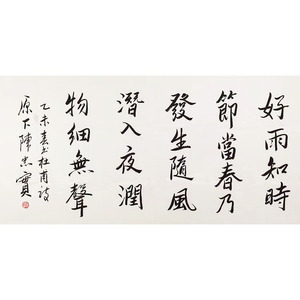 好雨知時
節當春乃
發生隨風
潛入夜潤
物細無聲
乙未春書杜甫詩
原下陳忠實